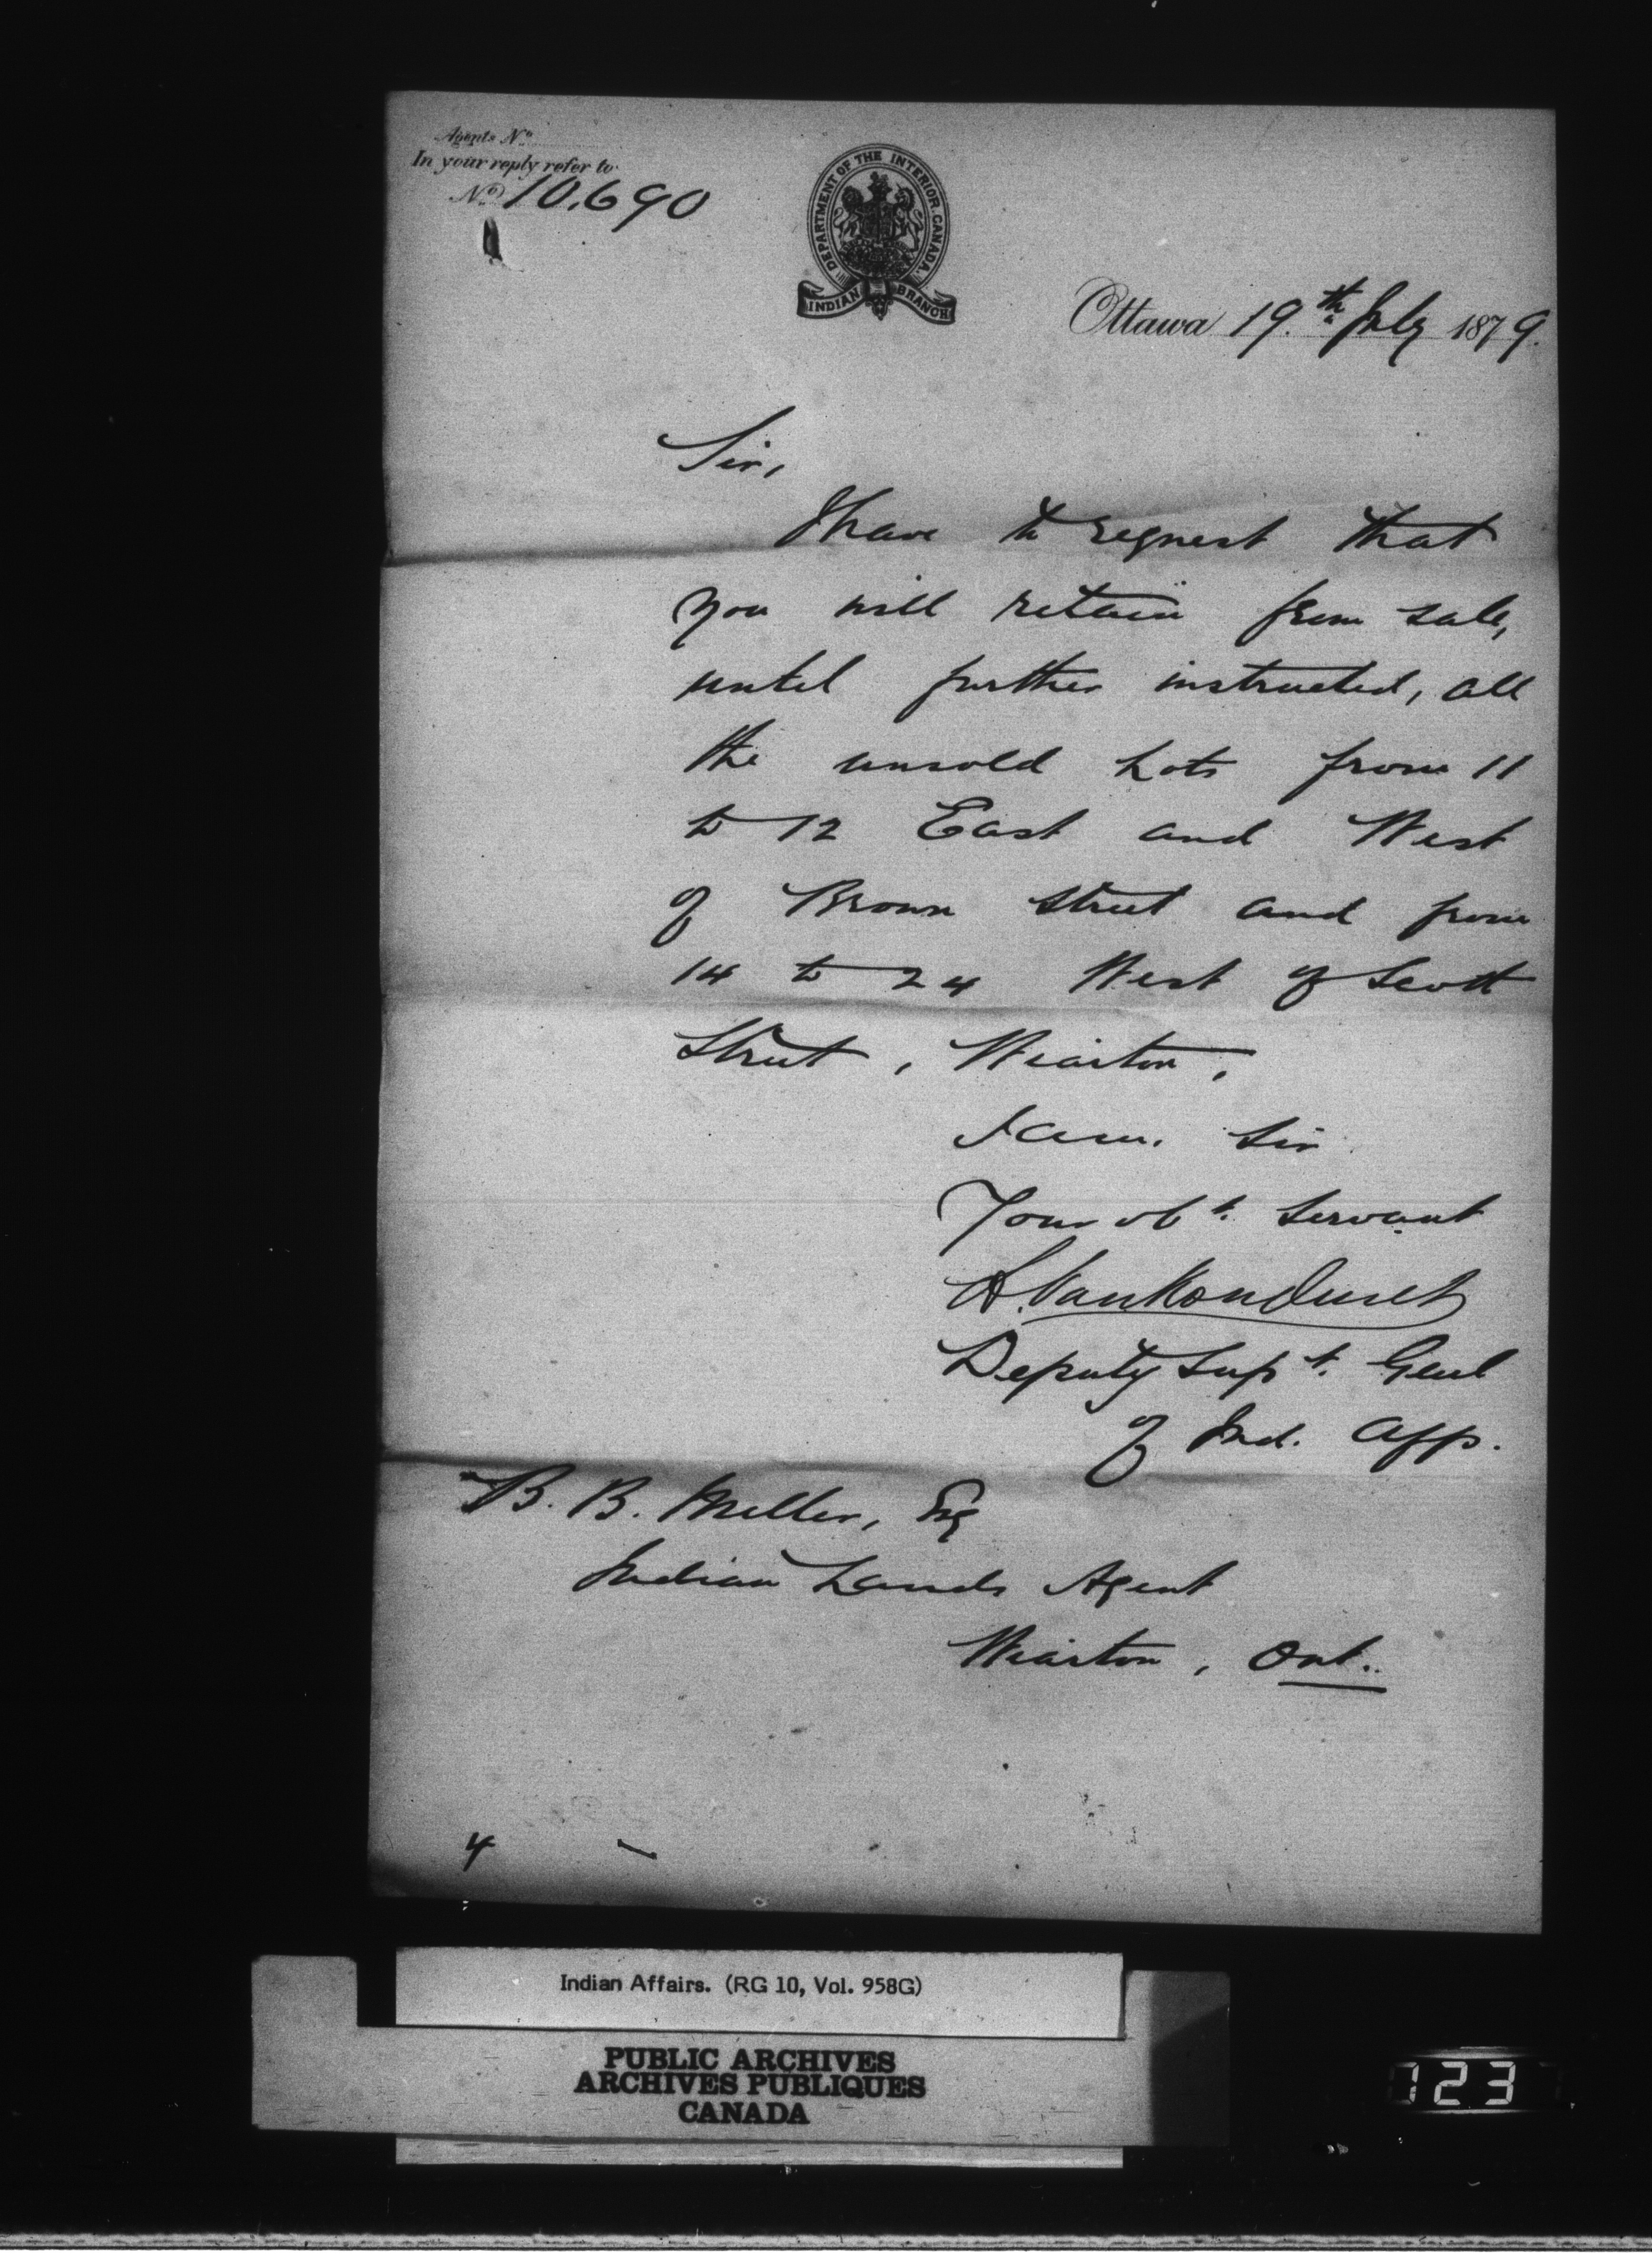 Agents No
In your reply refer to
No 10.690
DEPARTMENT OF THE INTERIOR. CANADA.
INDIAN BRANCH
Ottawa 19.th July 1879.
Sir,
I have to request that
you will retain from sale,
until further instructed, all
the unsold Lots from 11
to 12 East and West
of Brown Street and from
14 to 24 West of Scott
Street, Wiarton,
I am. Sir
Your obt. Servant
L. VanKoughnet
Deputy Supt. Genl
of Ind. Affs.
B. B. Miller, Esq
Indian Lands Agent
Wiarton, Ont..
4
Indian Affairs. (RG 10, Vol. 958G)
PUBLIC ARCHIVES
ARCHIVES PUBLIQUES
CANADA
123